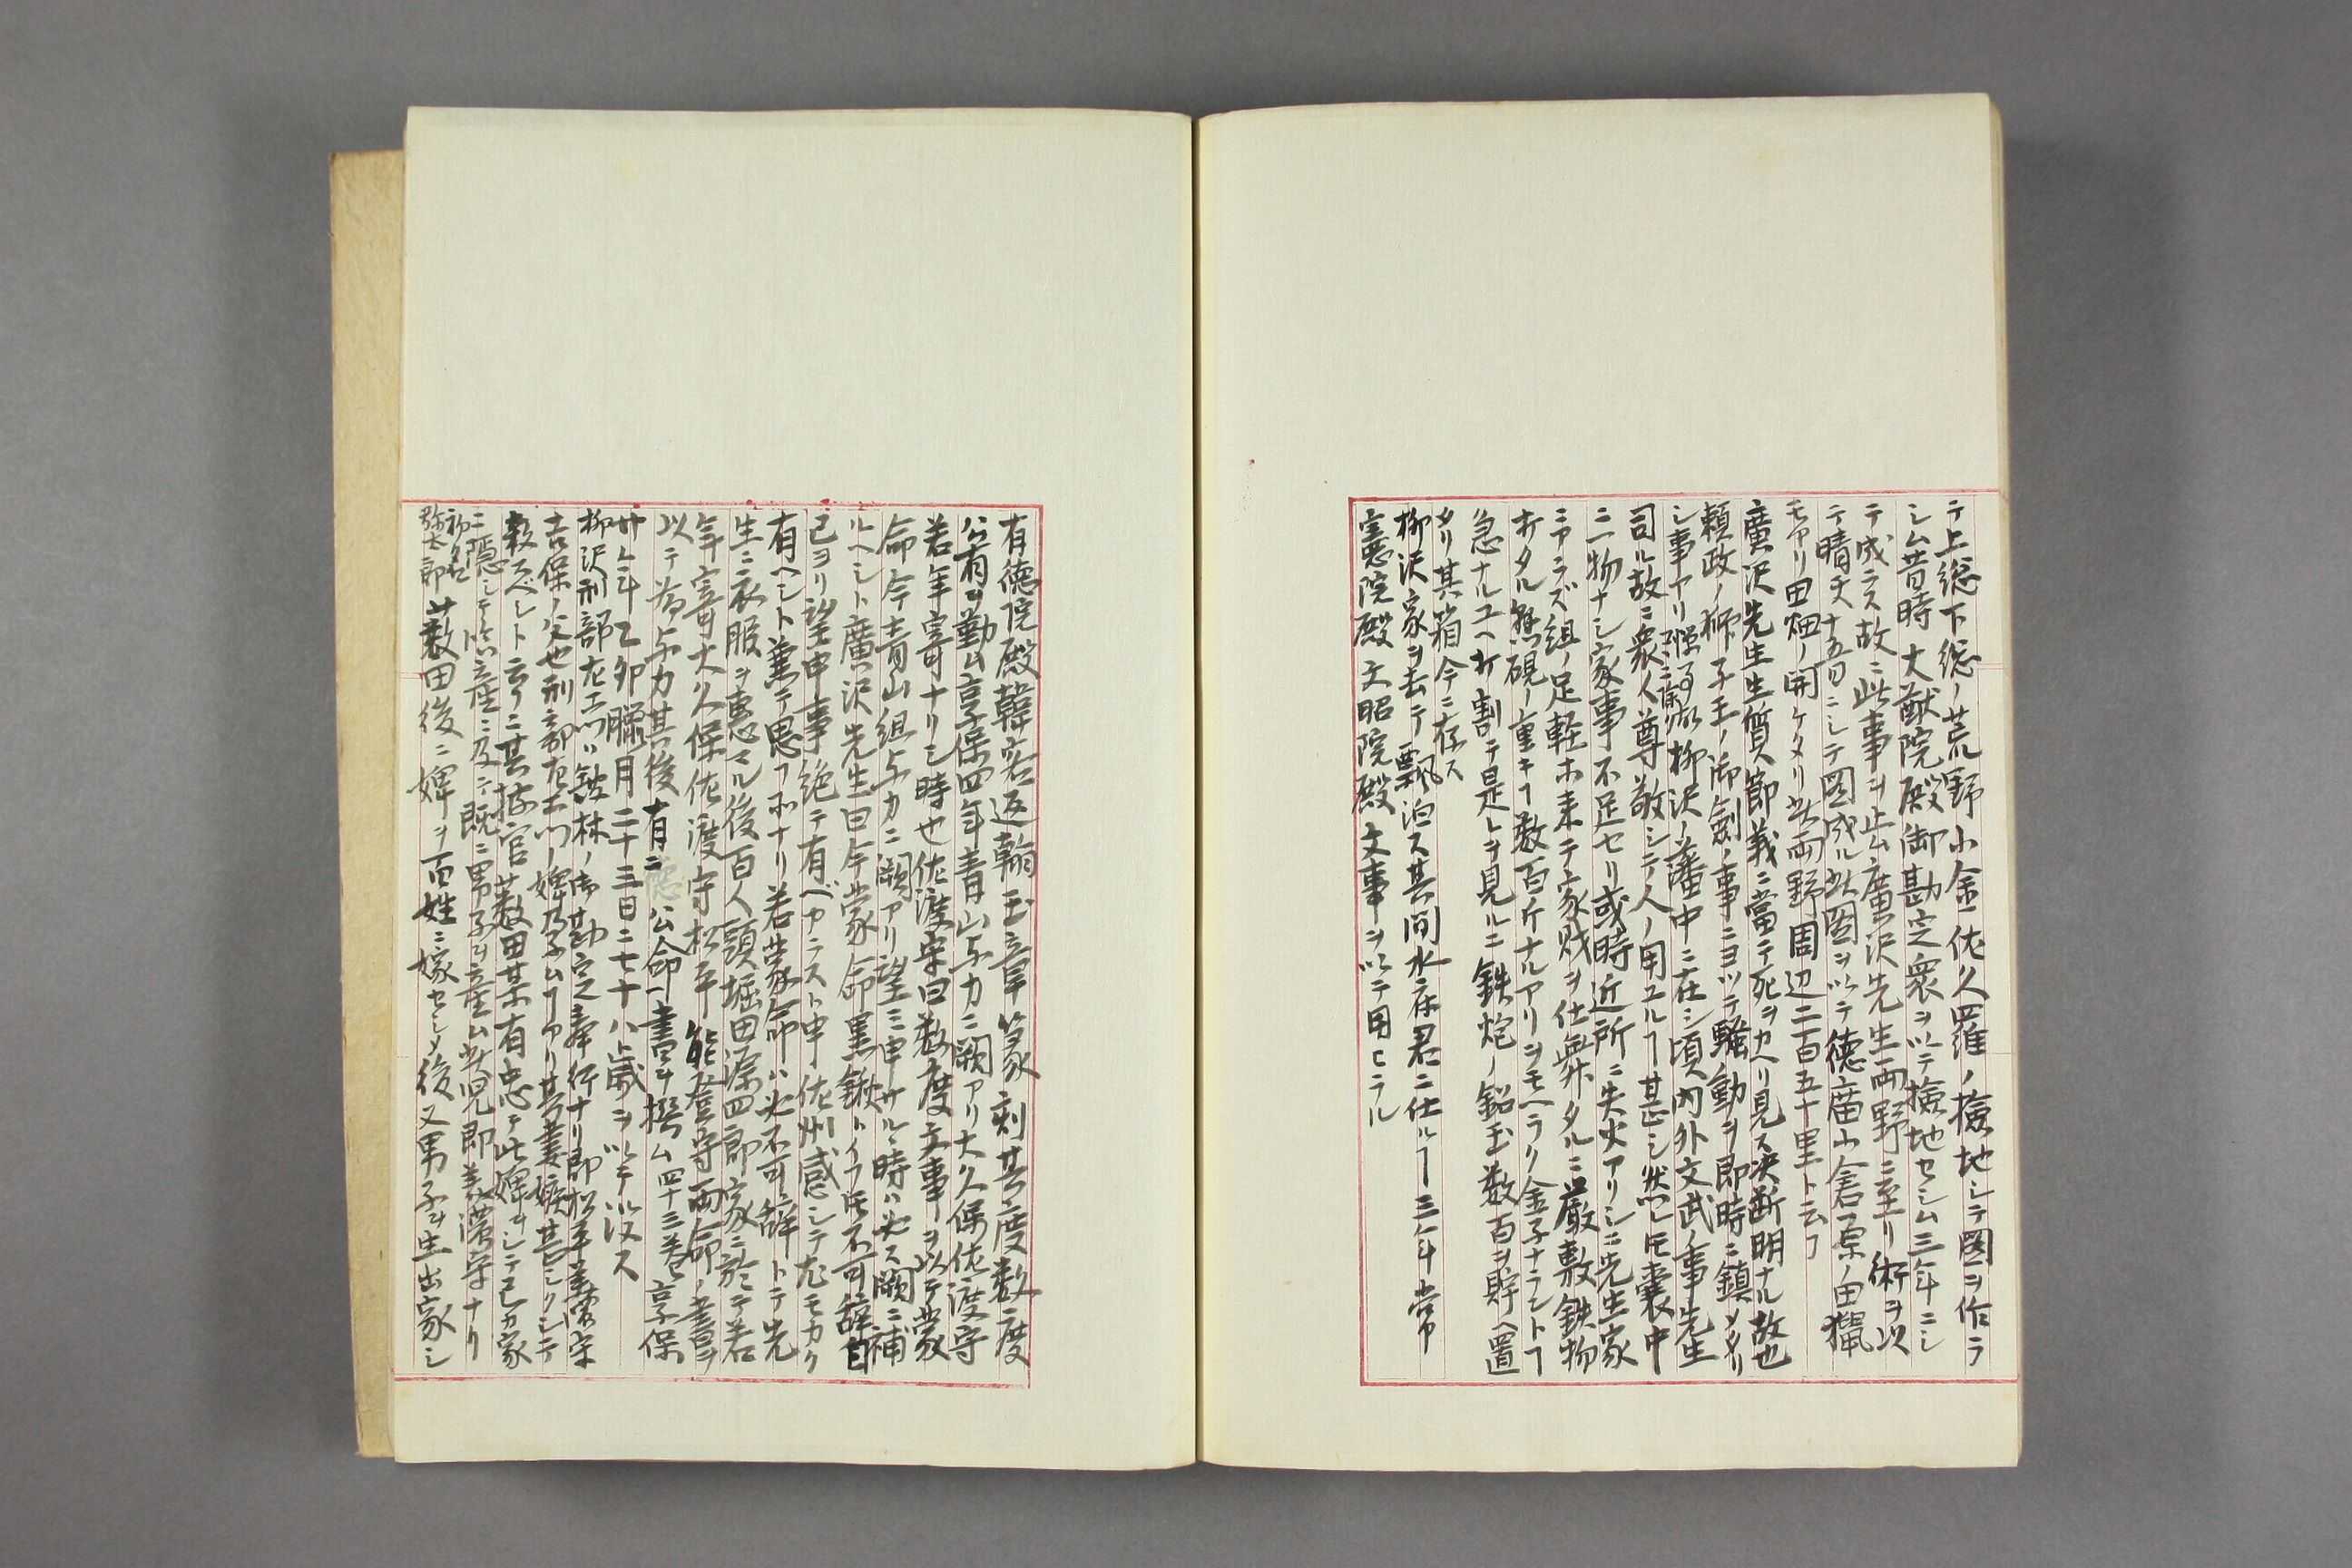 テ上総下総ノ荒野小金佐久羅ノ撿地シテ圖ヲ作ラ
シム昔時大猷院殿御勘定衆ヲ以テ撿地セシム三年ニシ
テ成ラス故ニ此事ヲ止ム廣沢先生両野ニ至リ術ヲ以
テ晴天十五日ニシテ圖成ル此圖ヲ以テ徳廣小倉原ノ田獵
モアリ田畑ノ開ケタリ此両野周辺二百五十里ト云フ
廣沢先生生質節義ニ當テ死ヲカヘリ見ス決断明ナル故也
頼政ノ獅子王ノ御劍ノ事ニヨツテ騒動ヲ即時ニ鎮メタリ
シ事アリ柳沢ノ藩中ニ在シ頃内外文武ノ事先生
司ル故ニ衆人尊敬シテ人ノ用ユルヿ甚シ然レ𪜈囊中
ニ一物ナシ家事不足セリ或時近所ニ失火アリシニ先生家
ニアラズ組ノ足軽ホ来テ家財ヲ仕舞タルニ嚴敷鉄物
オタル硯ノ重キヿ数百斤ナルアリヲモヘラク金子ナラントヿ
急ナルユヘ打割テ是ヲ見ルニ鉄炮ノ鉛玉数百ヲ貯ヘ置
タリ其箱今ニ存ス
柳沢家ヲ去テ飄泊ス其間水府君ニ仕ルヿ三年常
憲院殿文昭院殿文事ヲ以テ用ヒラル
有徳院殿韓客返翰玉章篆刻其度数ニ度
公著ヲ勤ム享保四年青山与力ニ闕アリ大久保佐渡守
若年寄ナリシ時也佐渡守曰数度文事ヲ以テ蒙
命今青山組与力ニ闕アリ望ミ申サル時ハ必ス闕ニ補
ルヘシト廣沢先生曰今蒙命黒鍬トイフ𪜈不可辞自
己ヨリ望申事絶テ有ベカラスト申佐州感シテ尤モカク
有ヘシト兼テ思フ所ナリ若蒙命ハ必不可辞トテ先
生ニ衣服ヲ惠マル後百人頭堀田源四郎家ニ於テ若
年寄大久保佐渡守松平能登守両命ノ書ヲ
以テ為与力其後有ニ公命一書ヲ撰ム四十三巻享保
廿年乙卯臘月二十三日ニ七十八歳ヲ以テ没ス
柳沢刑部左エ門ハ舘林ノ御勘定奉行ナリ即松平美濃守
吉保ノ父也刑部左エ門ノ婢孕ムヿアリ其妻嫉甚シクシテ
殺スベシト云フニ其据官薮田某有忠テ此婢ヲシテ己カ家
ニ隱シテ臨産ニ及ニ既ニ男子ヲ産ム此児即美濃守ナリ
初名弥太郎薮田後ニ婢ヲ百姓ニ嫁セシメ後又男子ヲ生出家シ